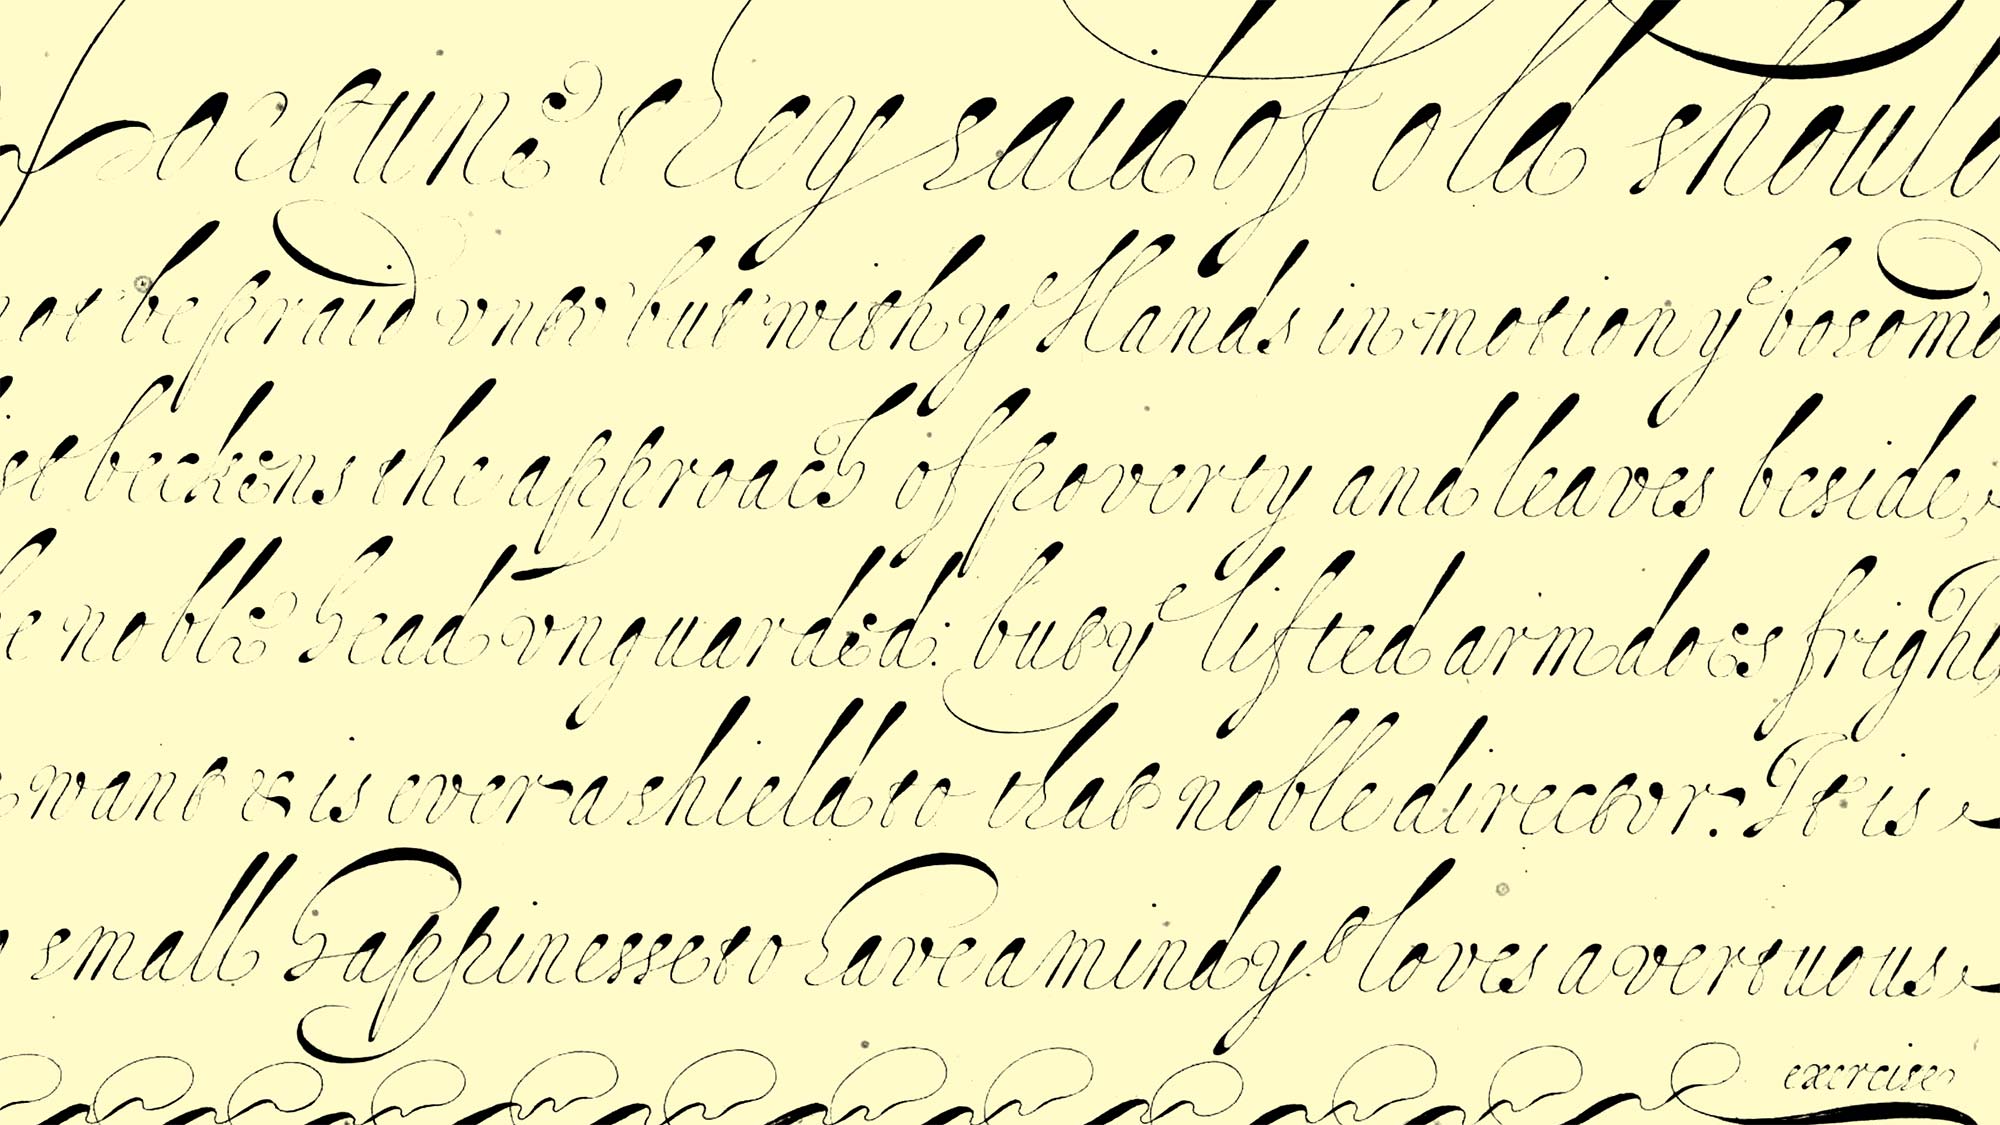 Fortune they said of old should
not be praid vnto but with yͤ Hands in motion yͤ bosom'd
ist beckens the approach of poverty and leaves beside,
he noble head vnguarded: but yͤ lifted arm does fright
want & is ever a shield to that noble director: It is
small happinesse to have a mind yͭ loves a vertuous
exercise